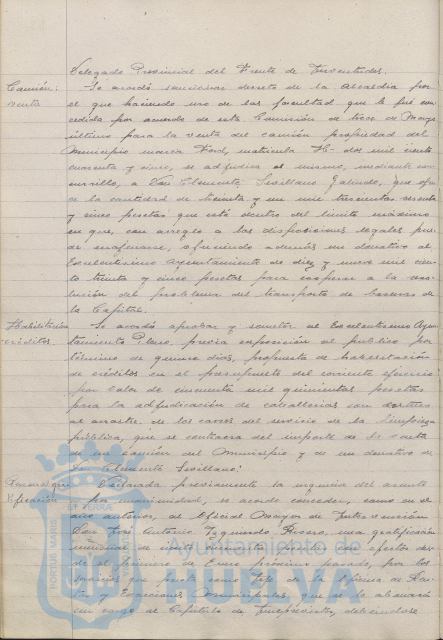 Delegado Provincial del Frente de Juventudes.
Camión: venta
Se acordó sancionar decreto de la Alcaldía por
el que haciendo uso de las facultad que le fué con-
cedida por acuerdo de esta Comisión de trece de Mayo
último para la venta del camión propiedad del
Municipio marca Ford, matrícula H- dos mil ciento
cuarenta y cinco, se adjudica el mismo, mediante con-
cursillo, a Don Clemente Sevillano Galindo, que ofre-
ce la cantidad de treinta y un mil trescientas sesenta
y cinco pesetas que está dentro del límite máximo
en que, con arreglo a las disposiciones legales pue-
de enajenarse, ofreciendo además un donativo al
Excelentísimo Ayuntamiento de diez y nueve mil cien-
to treinta y cinco pesetas para cooperar a la reso-
lución del problema del transporte de basuras de
la Capital.
Habilitación créditos
Se acordó aprobar y someter al Excelentísimo Ayun-
tamiento Pleno, previa exposición al público por
término de quince días, propuesta de habilitación
de créditos en el presupuesto del corriente ejercicio
por valor de cincuenta mil quinientas pesetas
para la adjudicación de caballerías con destino
al arrastre de los carros del servicio de la limpieza
pública, que se contraerá del importe de la venta
de un camión del Municipio y de un donativo de
Don Clemente Sevillano.
Declarada previamente la urgencia del asunto
por unanimidad, se acordó conceder, como en el
año anterior, al Oficial Mayor de Intervención
Don José Antonio Izquierdo Rivero, una gratificación
mensual de pesetas, con efectos des-
de el primero de Enero próximo pasado, por los
servicios que presta como Jefe de la Oficina de Ren-
tas y Exacciones Municipales, que se le abonarán
con cargo al Capítulo de Imprevistos, debiéndose
Ayuntamiento de
HUELVA
PORTUS MARIS